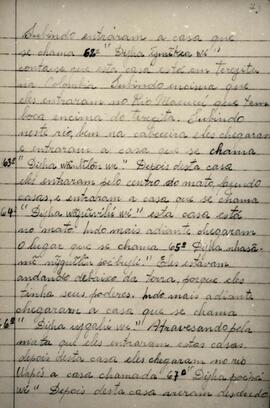 Subindo entraram a casa que
se chama 62º "Diʉha
conta-se que esta casa está em Teresita
na Colombia. Subindo encima que
eles entraram no Rio Macucú que tem
boca encima do Teresita. Subindo
neste rio, bem na cabeceira eles chegaram
e entraram a casa que se chama
63º wi". Depois desta casa
eles entraram pelo centro do mato, fazendo
casas, e entraram a casa que se chama
64º wi" esta casa está
no mato. Indo mais adiante, chegaram
o lugar que se chama 65º
Eles estavam
andando debaixo da terra, porque eles
tinha seus poderes. Indo mais adiante
chegaram a casa que se chama
6º wi" Atravessando pela
mata que eles entraram estas casas
depois desta casa eles chegaram no rio
Uapés a casa chamada 67º
wi" Depois desta casa vieram descendo